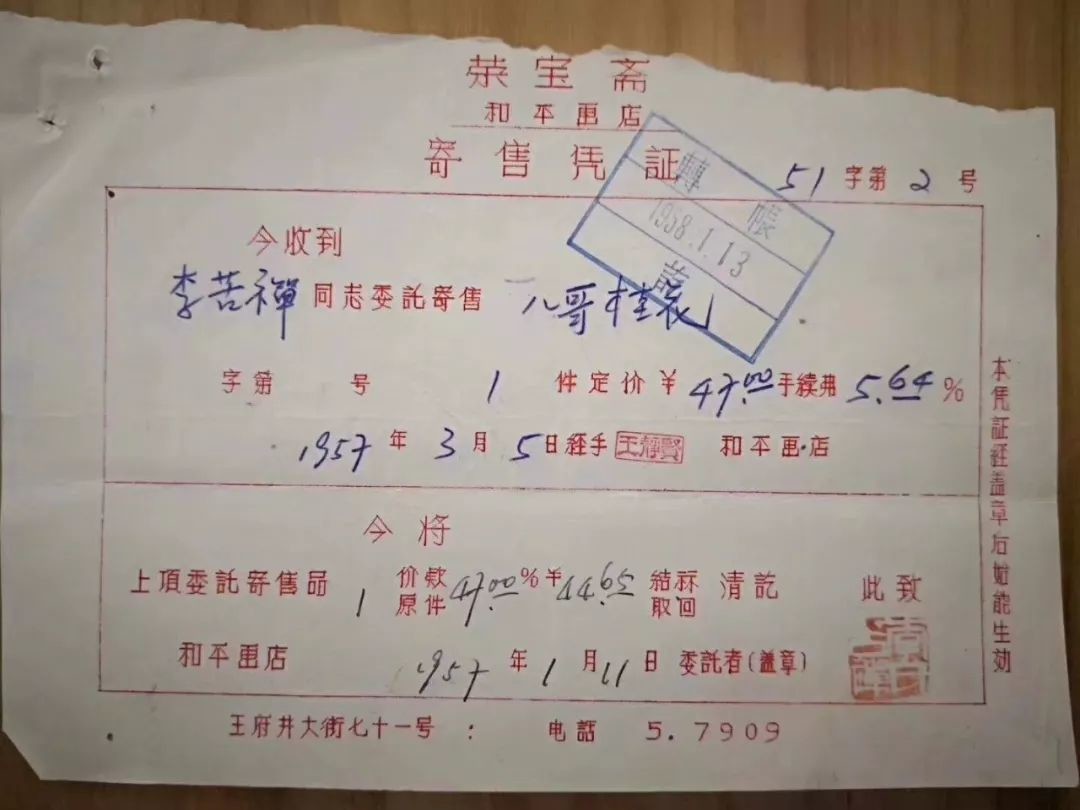 荣宝斋
和平画店
寄售凭証
51字第2号
轉帳
1958.1.13
今收到
李苦禅同志委託寄售 八哥
字第 号 1 件定价￥47.00手续弗5.64%
1957年3月5日经手 王靜賢 和平画店
今将
上項委託寄售品 1 价款 47.00 % ￥ 结 清訖 此致
原件 取回
和平画店 1957年1月11日 委託者(盖章)
王府井大街七十一号 : 电話 5.7909
本凭証经盖章后始能生効